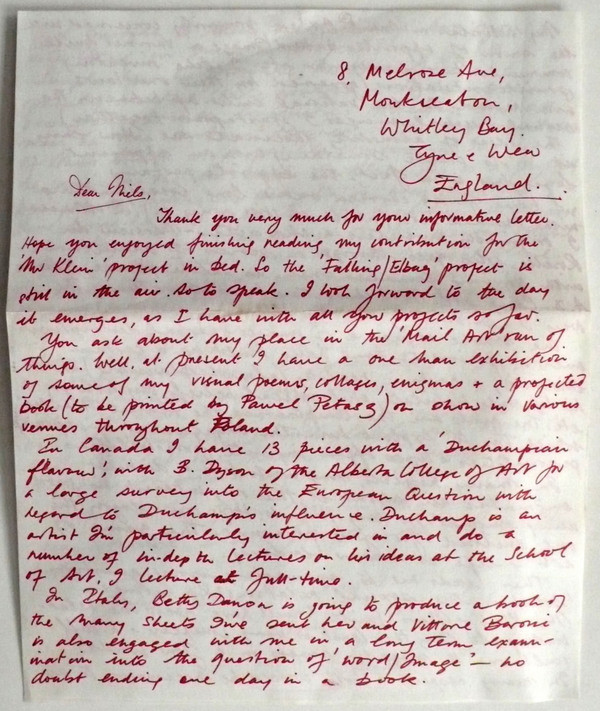 8, Melrose Ave,
Monkseaton,
Whitley Bay.
Tyne & Wear
England.
Dear Niels,
Thank you very much for your informative letter.
Hope you enjoyed finishing reading my contribution for the
'Mr Klein' project in bed. So the 'Falling/ project is
still in the air so to speak. I look forward to the day
it emerges, as I have with all your projects so far.
You ask about my place in the 'Mail Art' run of
things. Well, at present I have a one man exhibition
of some of my visual poems, collages, enigmas + a projected
book (to be printed by Pawel Petasz) on show in various
venues throughout Poland.
In Canada I have 13 pieces with a 'Duchampian
flavour', with B. Dyson of the Alberta College of Art for
a large survey into the European Question with
regard to Duchamp's influence. Duchamp is an
artist I'm particularly interested in and do a
number of in-depth lectures on his ideas at the School
of Art, I lecture at full-time.
In Italy, Betty Danon is going to produce a book of
the many sheets I've sent her and Vittore Baroni
is also engaged with me in a long term exam-
ination into the question of 'word/Image' – no
doubt ending one day in a book.